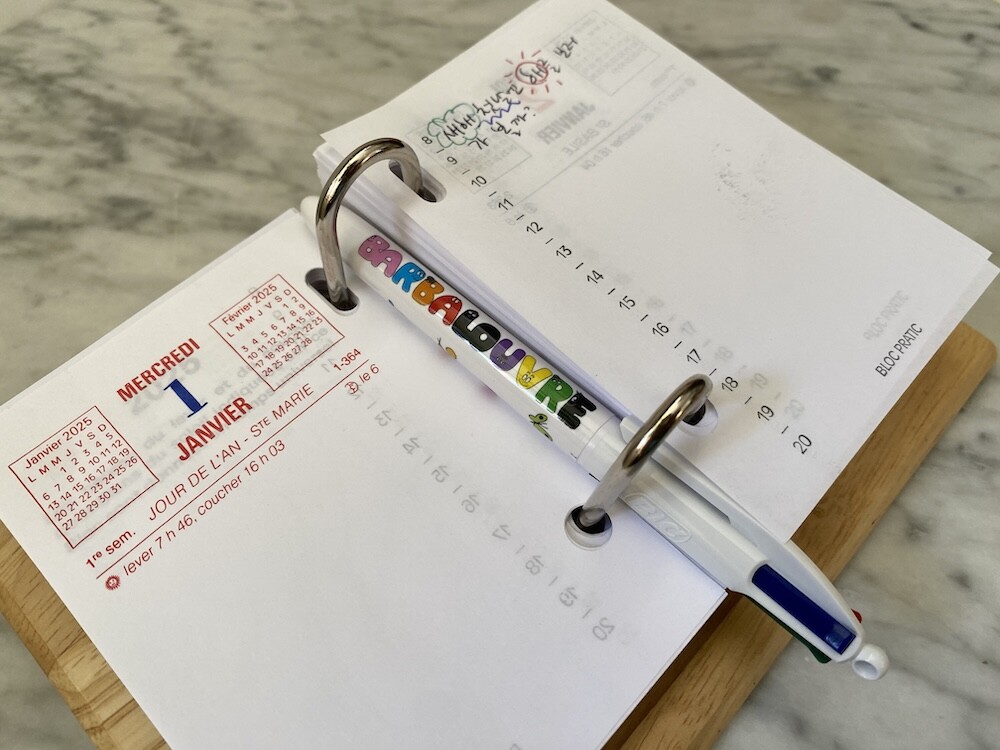 Janvier 2025
L M M J V S D
1 2 3 4 5
6 7 8 9 10 11 12
13 14 15 16 17 18 19
20 21 22 23 24 25 26
27 28 29 30 31
MERCREDI
1
JANVIER
Février 2025
L M M J V S D
1 2
3 4 5 6 7 8 9
10 11 12 13 14 15 16
17 18 19 20 21 22 23
24 25 26 27 28
1re sem. JOUR DE L'AN - Ste MARIE 1-364
lever 7 h 46, coucher 16 h 03 le 6
BARBALOUVRE
BIC
새해
8
9
10
11
12
13
14
15
16
17
18
19
20
BLOC PRATIC